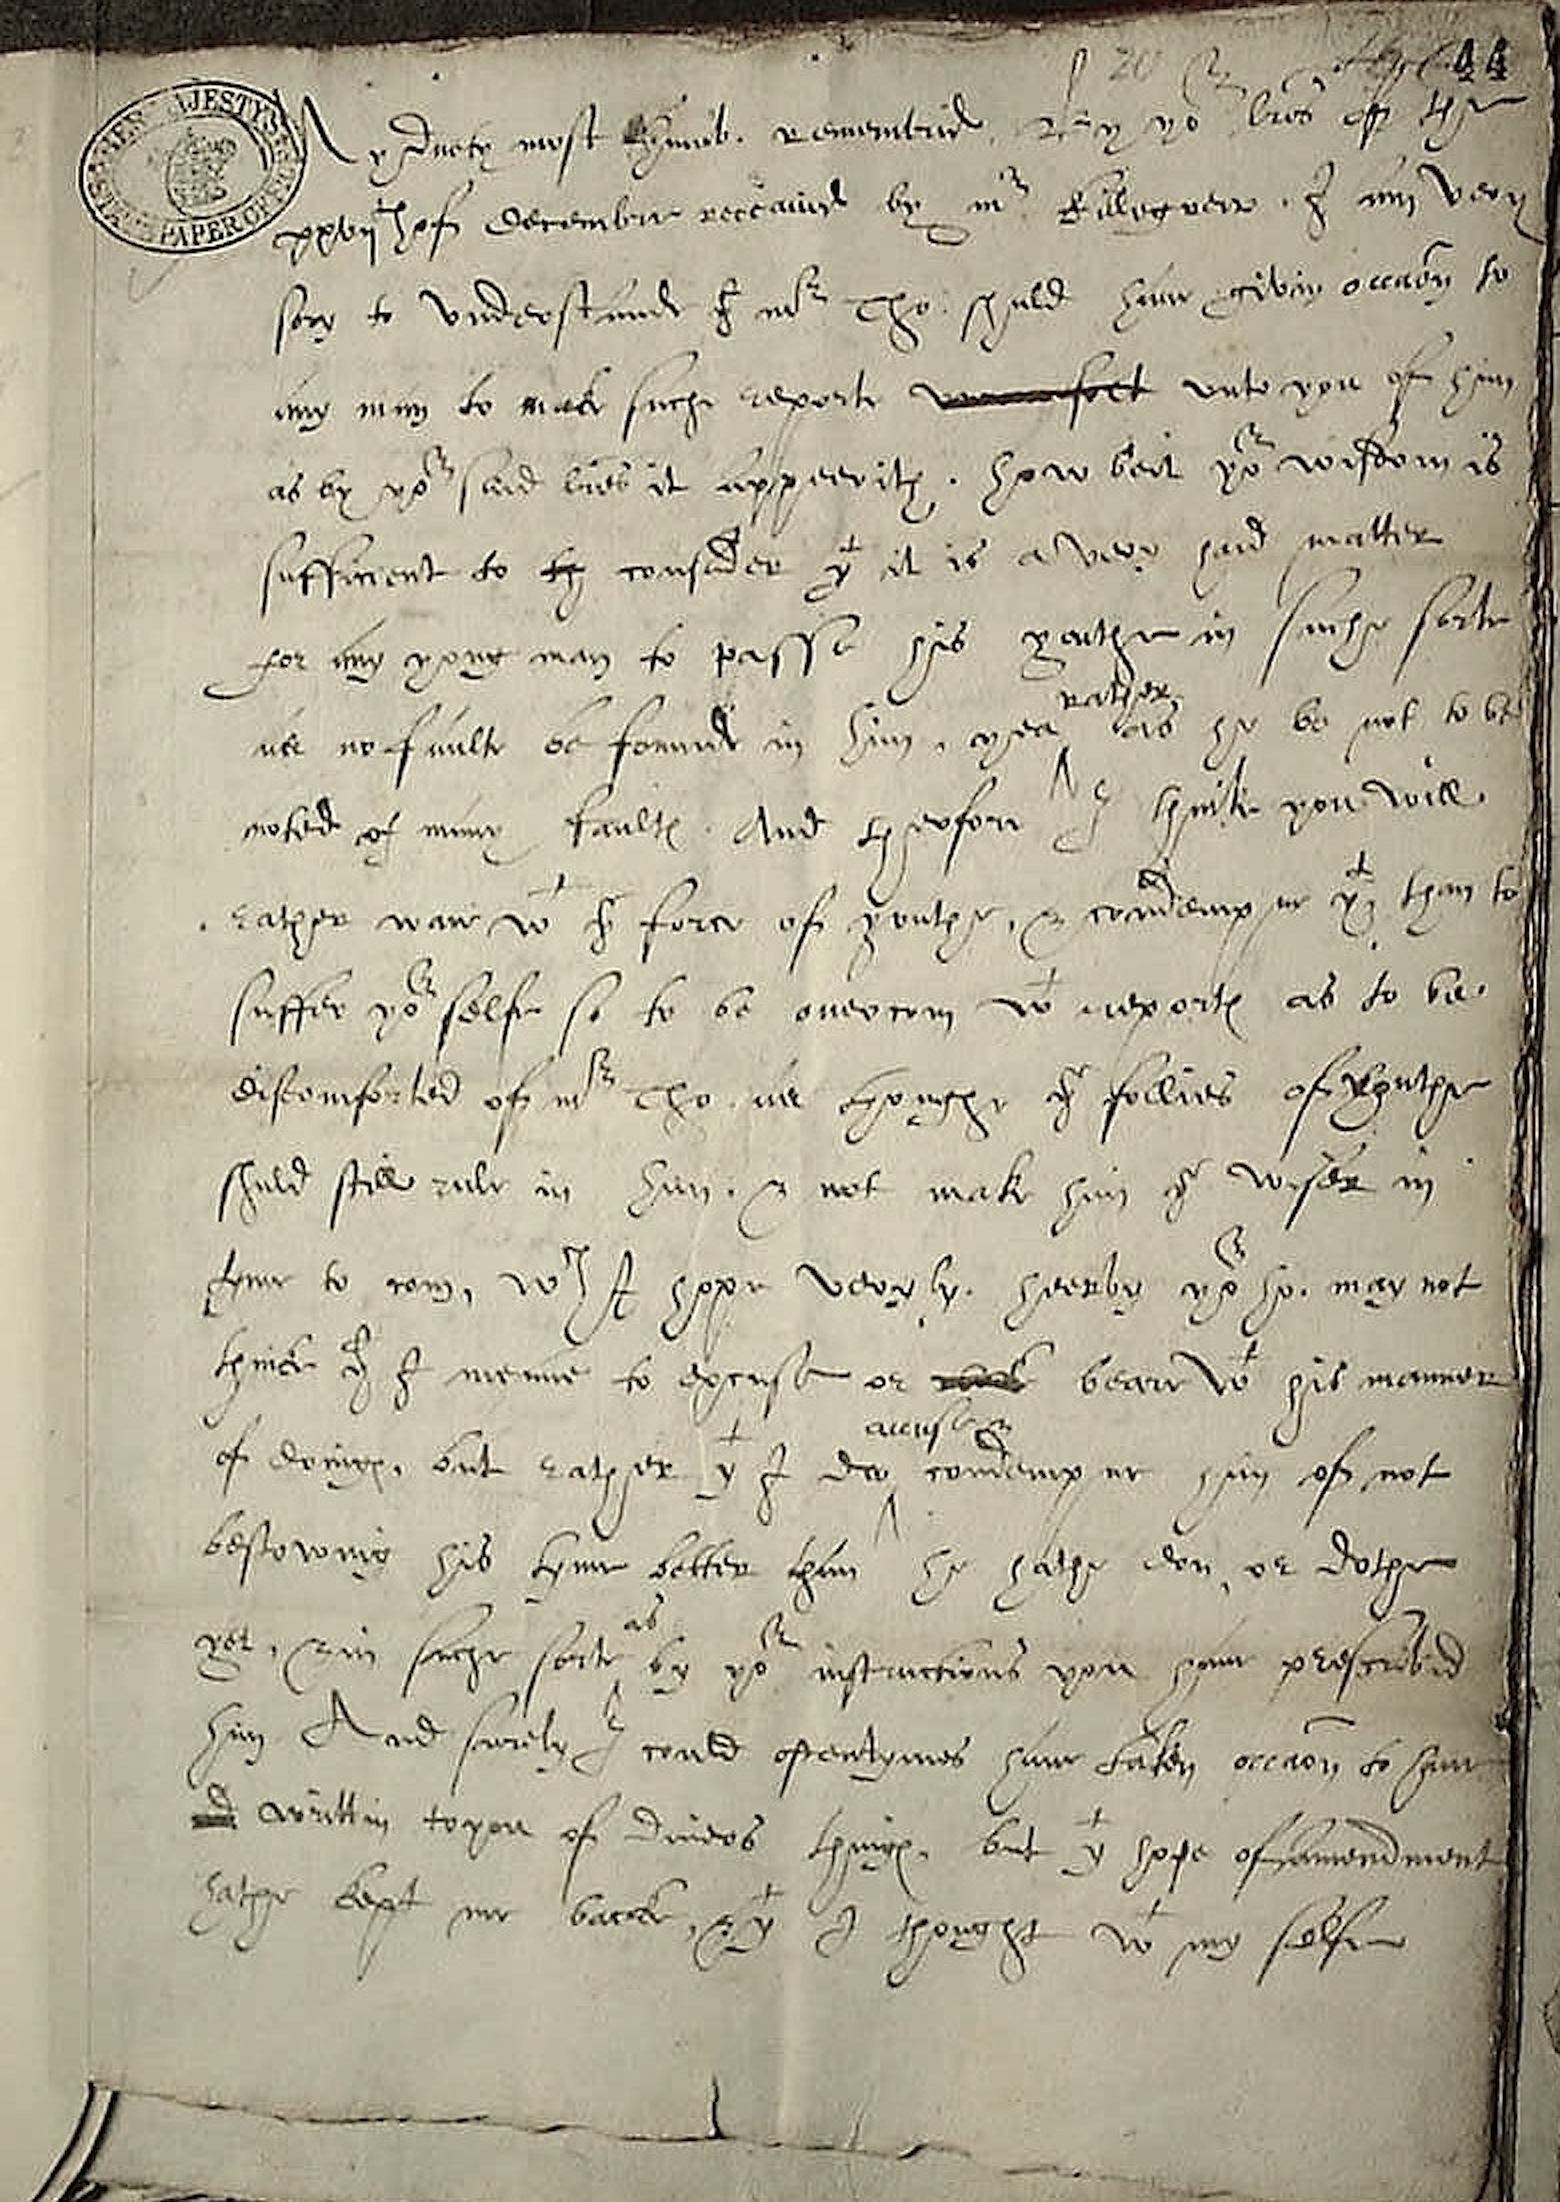 44
HER MAJESTY'S STATE PAPER OFFICE
My duety most humb. remembrid. By yor lres off the
xxvijth of december receauid by mr Killegrew. I am very
sory to understande yt mr Tho. shuld haue givin occaon to
any man to make suche reporte unto you of him
as by yor said lres it appeerith. howbeit yor wisdom is
sufficient to th consider yt it is a very hard matter
for any yong man to passe his youthe in suche sorte
as no faulte be founde in him, yea rather as he be not to be
noted of many faultes. And therfore I think you will
rather waie wt ye force of youthe, & condempne yt than to
suffer yor selfe so to be overcom wt reportes as to be
discomforted of mr Tho. as thoughe ye follies of youthe
shuld still rule in him. & not make him ye wiser in
tyme to com, wch I hope veryly. heerby yor ho. may not
thinke yt I meane to excuse or beare wt his manner
of doinges. but rather yt I do accuse & condempne him of not
bestowing his tyme better than he hathe don, or dothe
yet, & in suche sorte as by yor instructions you haue prescribid
him And surely I could oftentymes haue taken occaon to haue
writtin to you of divers thinges. but ye hope of amendment
hathe kept me backe, & yt I thought wt my selfe